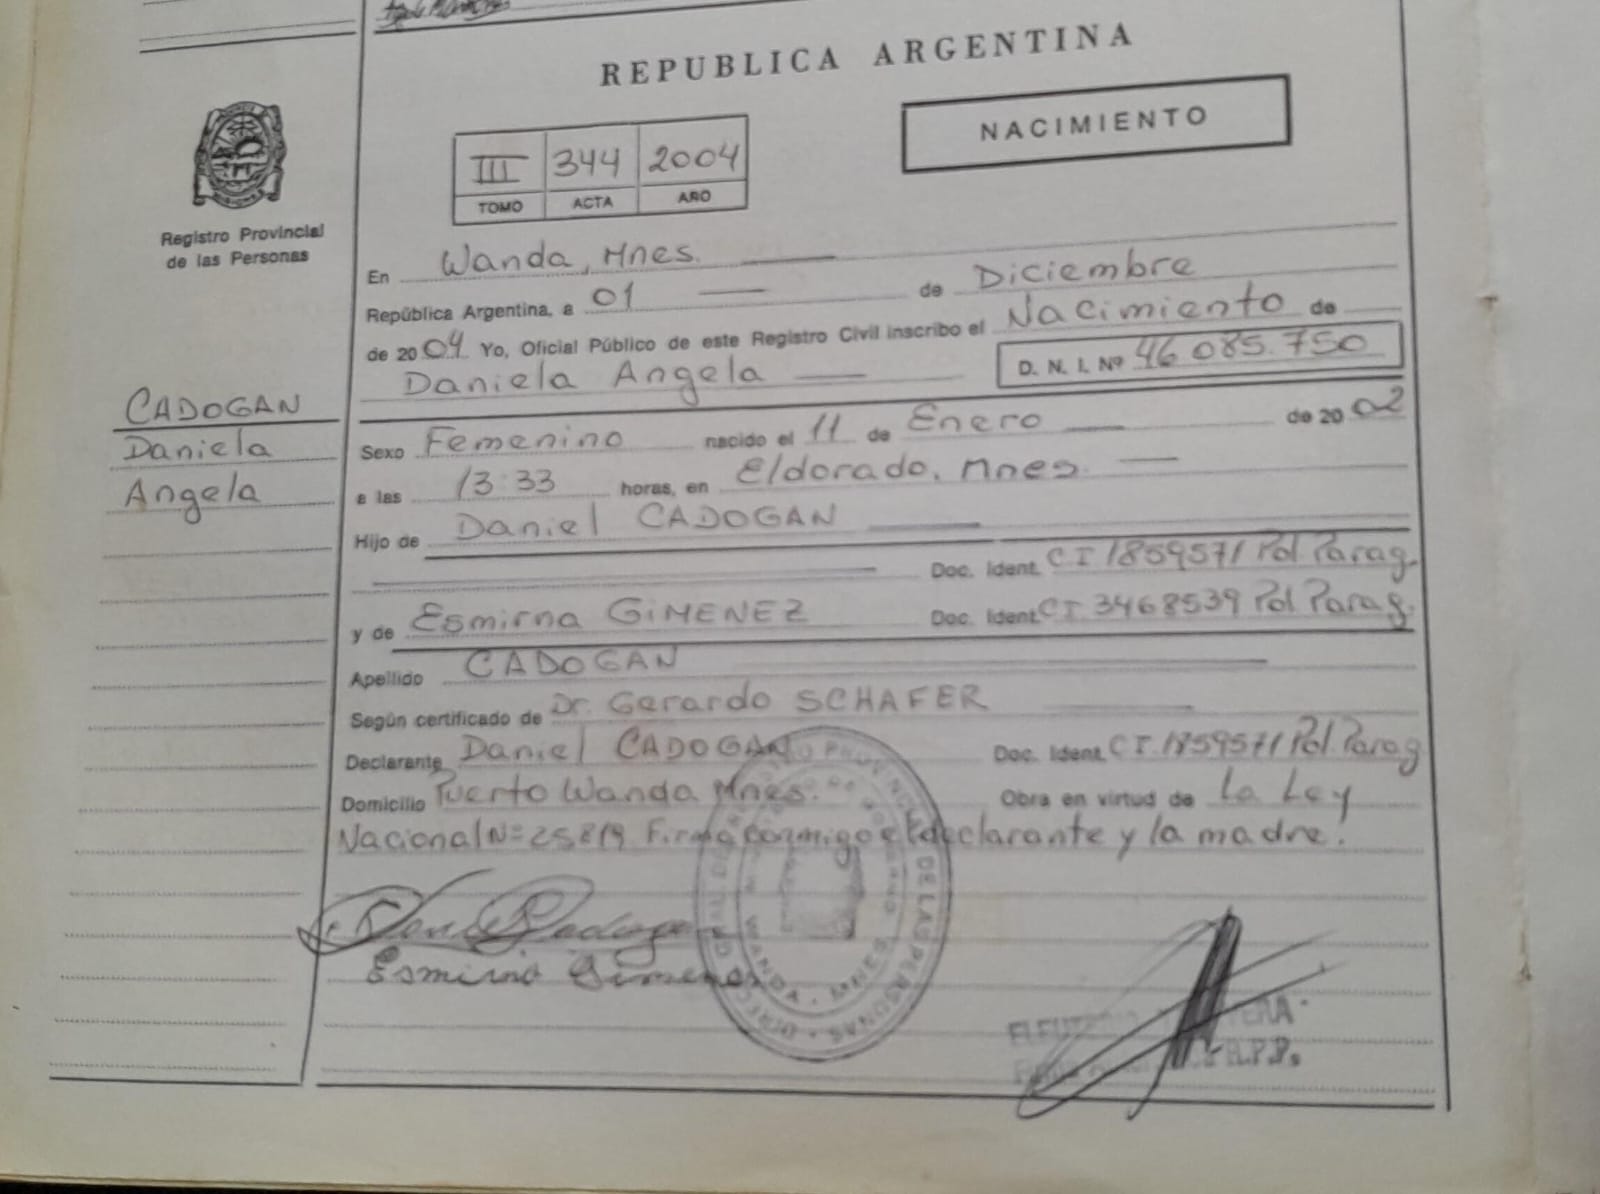 REPUBLICA ARGENTINA
NACIMIENTO
III 344 2004
TOMO ACTA AÑO
Registro Provincial
de las Personas
CADOGAN
Daniela
Angela
En Wanda, Mnes.
República Argentina, a 01 de Diciembre
de 2004 Yo, Oficial Público de este Registro Civil inscribo el Nacimiento de
Daniela Angela D. N. I. Nº 46 085.750
Sexo Femenino nacido el 11 de Enero de 2002
a las 13:33 horas, en Eldorado, Mnes.
Hijo de Daniel CADOGAN
Doc. Ident. CI 1859571 Pol Parag.
y de Esmirna GIMENEZ Doc. Ident CI. 3468539 Pol Parag.
Apellido CADOGAN
Según certificado de Dr. Gerardo SCHAFER
Declarante Daniel CADOGAN Doc. Ident. CI. 1859571 Pol. Parag
Domicilio Puerto Wanda Mnes. Obra en virtud de La Ley
Nacional Nº 25819 Firma conmigo el declarante y la madre.
Esmirna Gimenez
WANDA - Mnes
DE LAS PERSONAS